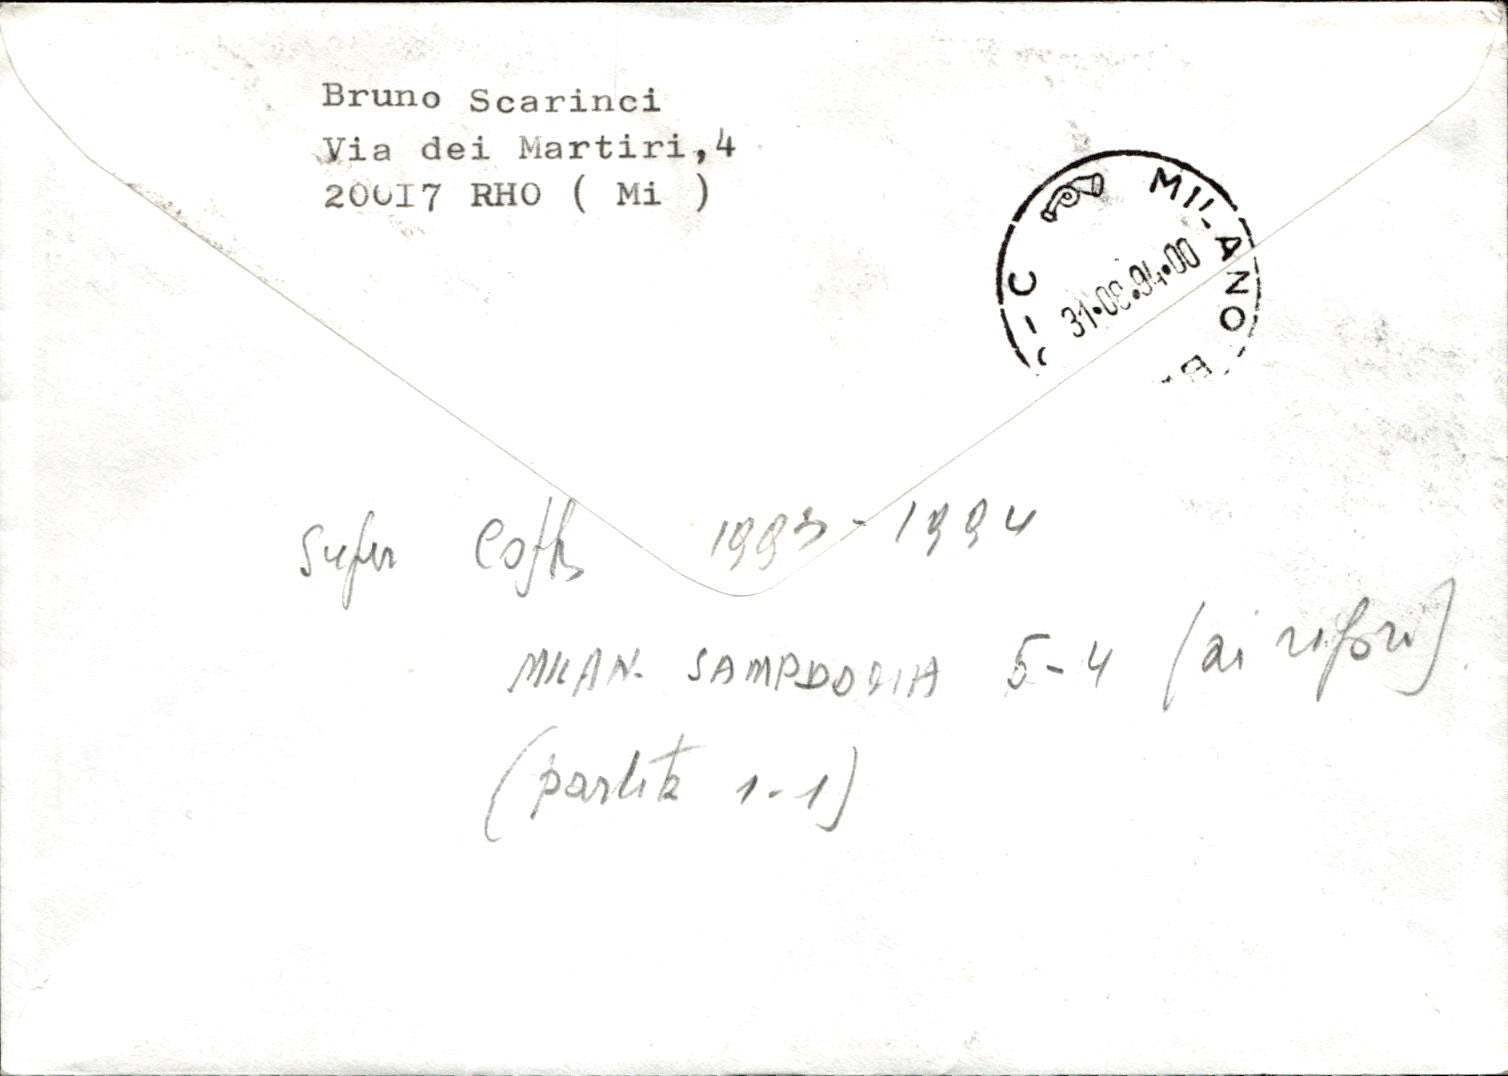 Bruno Scarinci
Via dei Martiri,4
20017 RHO ( Mi )
MILANO
31•08•94•00
C
Super Coppa 1993-1994
MILAN- SAMPDORIA 5-4 (ai rigori)
(partita 1-1)